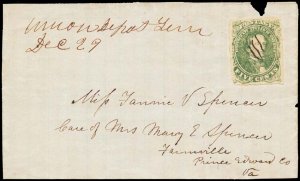 Union Depot Tenn
Dec 29
FIVE CENTS
Miss Fannie V Spencer
Care of Mrs Mary E Spencer
Farmville
Prince Edward Co
Va